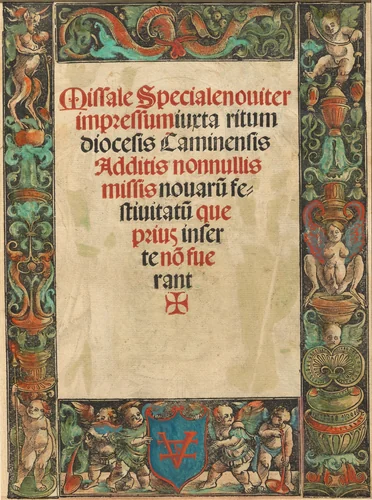 Missale Specialenoviter
impressumiuxta ritum
diocesis Caminensis
Additis nonnullis
missis novarū fe⸗
stivitatū que
priuꝫ inser
te nō fue
rant